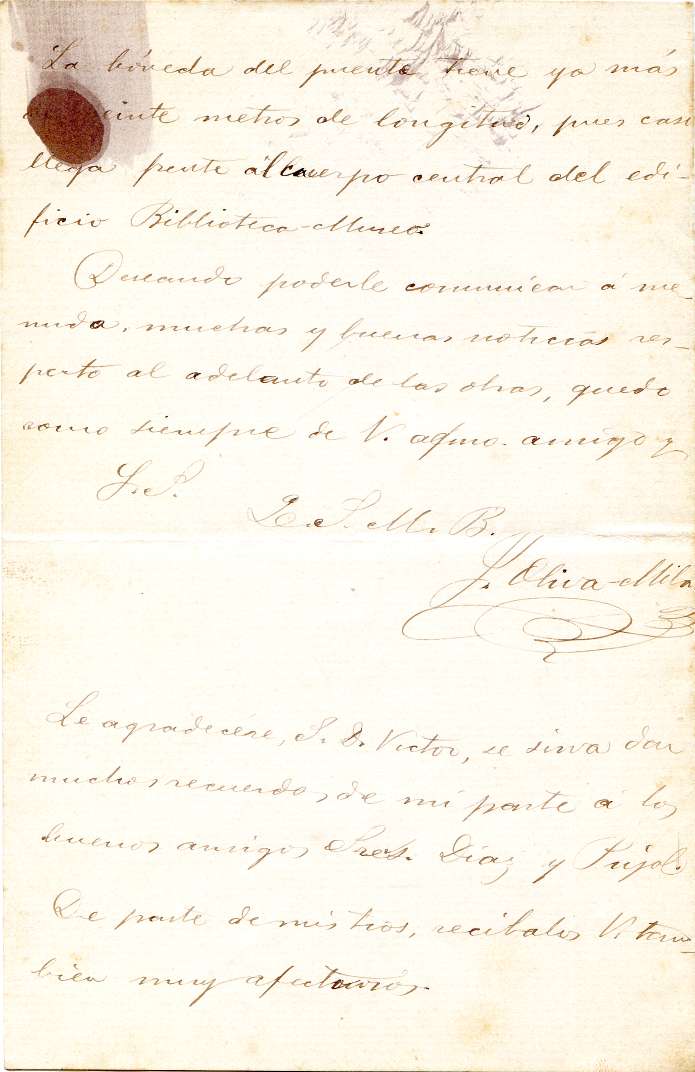 La bóveda del puente tiene ya más
de veinte metros de longitud, pues casi
llega frente al cuerpo central del edi-
ficio Biblioteca-Museo.
Deseando poderle comunicar á me-
nudo, muchas y buenas noticias res-
pecto al adelanto de las obras, quedo
como siempre de V. afmo. amigo y
S. S.
Q. S. M. B.
J. Oliva-Milá
Le agradeceré, S. D. Victor, se sirva dar
muchos recuerdos de mi parte á los
buenos amigos Sres. Díaz y Pujol.
De parte de mis tios, recíbalos V. tam-
bien muy afectuosos.